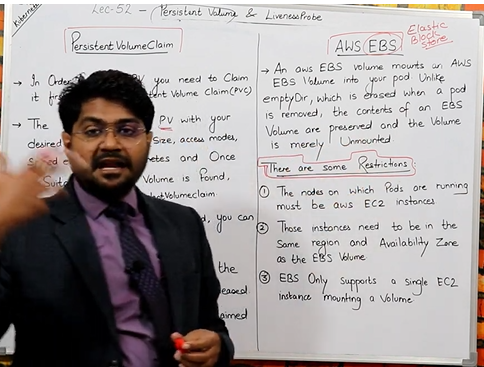 Kubernetes
Lec-52 - Persistent Volume & LivenessProbe
PersistentVolumeClaim
→ In Order PV you need to Claim
it from Volume Claim (PVC)
→ The PV with your
desired Size, access modes,
and Once
Volume is Found,
Volumeclaim
you can
the
AWS EBS
Elastic
Block
Store
→ An aws EBS volume mounts an AWS
EBS Volume into your pod Unlike
emptyDir, which is erased when a pod
is removed, the contents of an EBS
Volume are preserved and the Volume
is merely Unmounted
There are some Restrictions
① The nodes on which Pods are running
must be aws EC2 instances
② Those instances need to be in the
Same region and Availability Zone
as the EBS Volume
③ EBS Only supports a single EC2
instance mounting a Volume